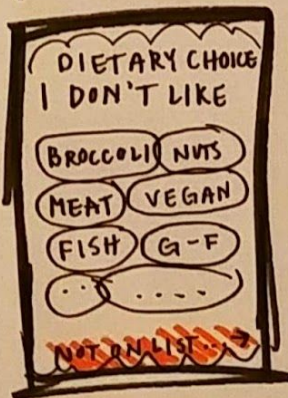 DIETARY CHOICE
I DON'T LIKE
BROCCOLI NUTS
MEAT VEGAN
FISH G-F
.. ....
NOT ON LIST...→